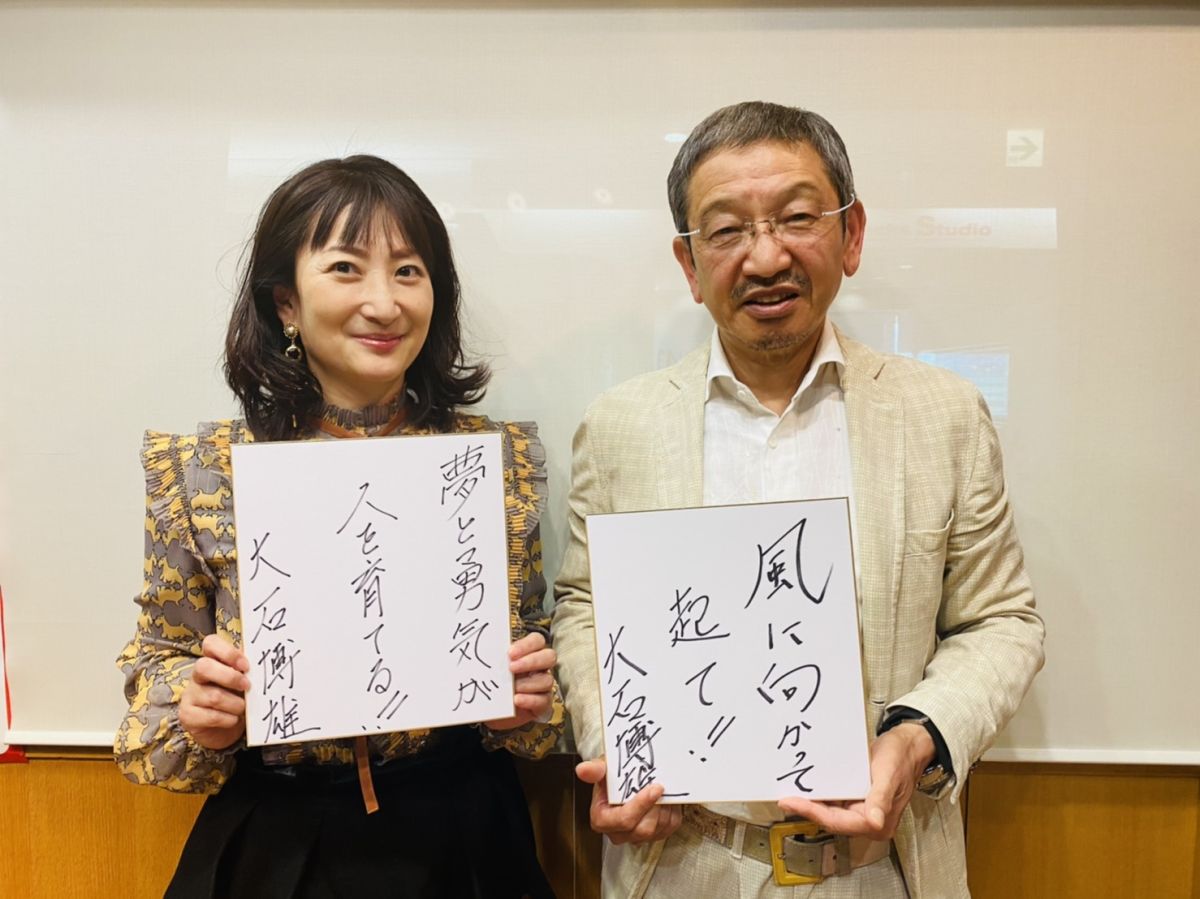 夢と勇気が
人を育てる!!
大石博雄
風に向かって
起て!!
大石博雄
Studio